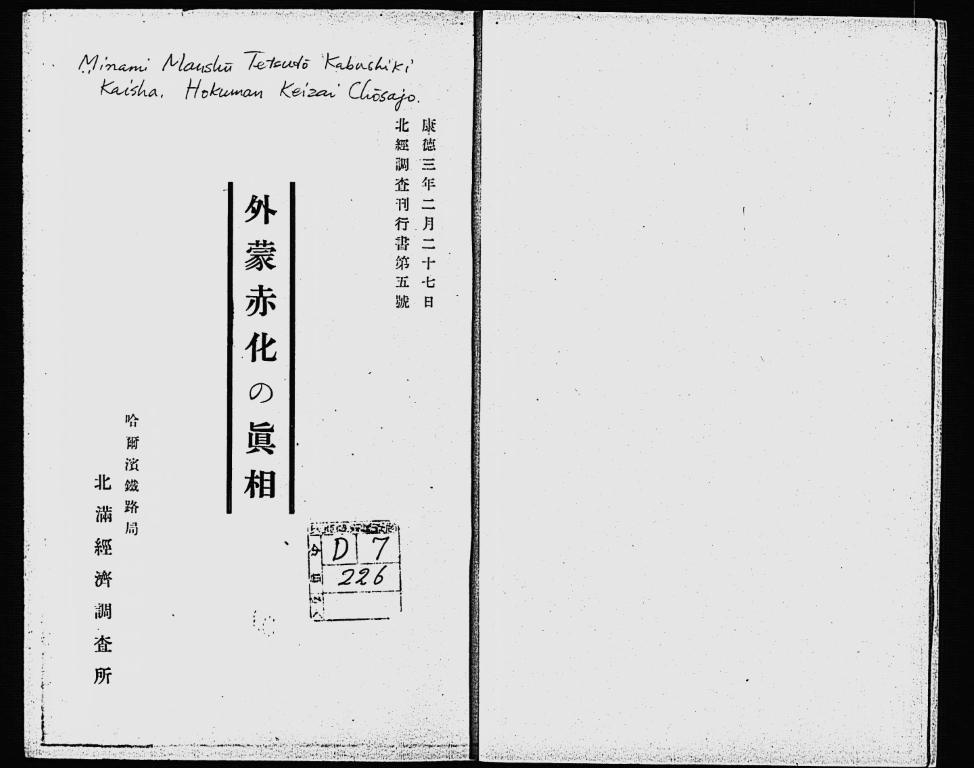 Minami Manshū Tetsudō Kabushiki
Kaisha. Hokuman Keizai Chōsajo.
康德三年二月二十七日
北經調査刊行書第五號
外蒙赤化の眞相
哈爾濱鐵路局
北滿經濟調査所
D 7
226